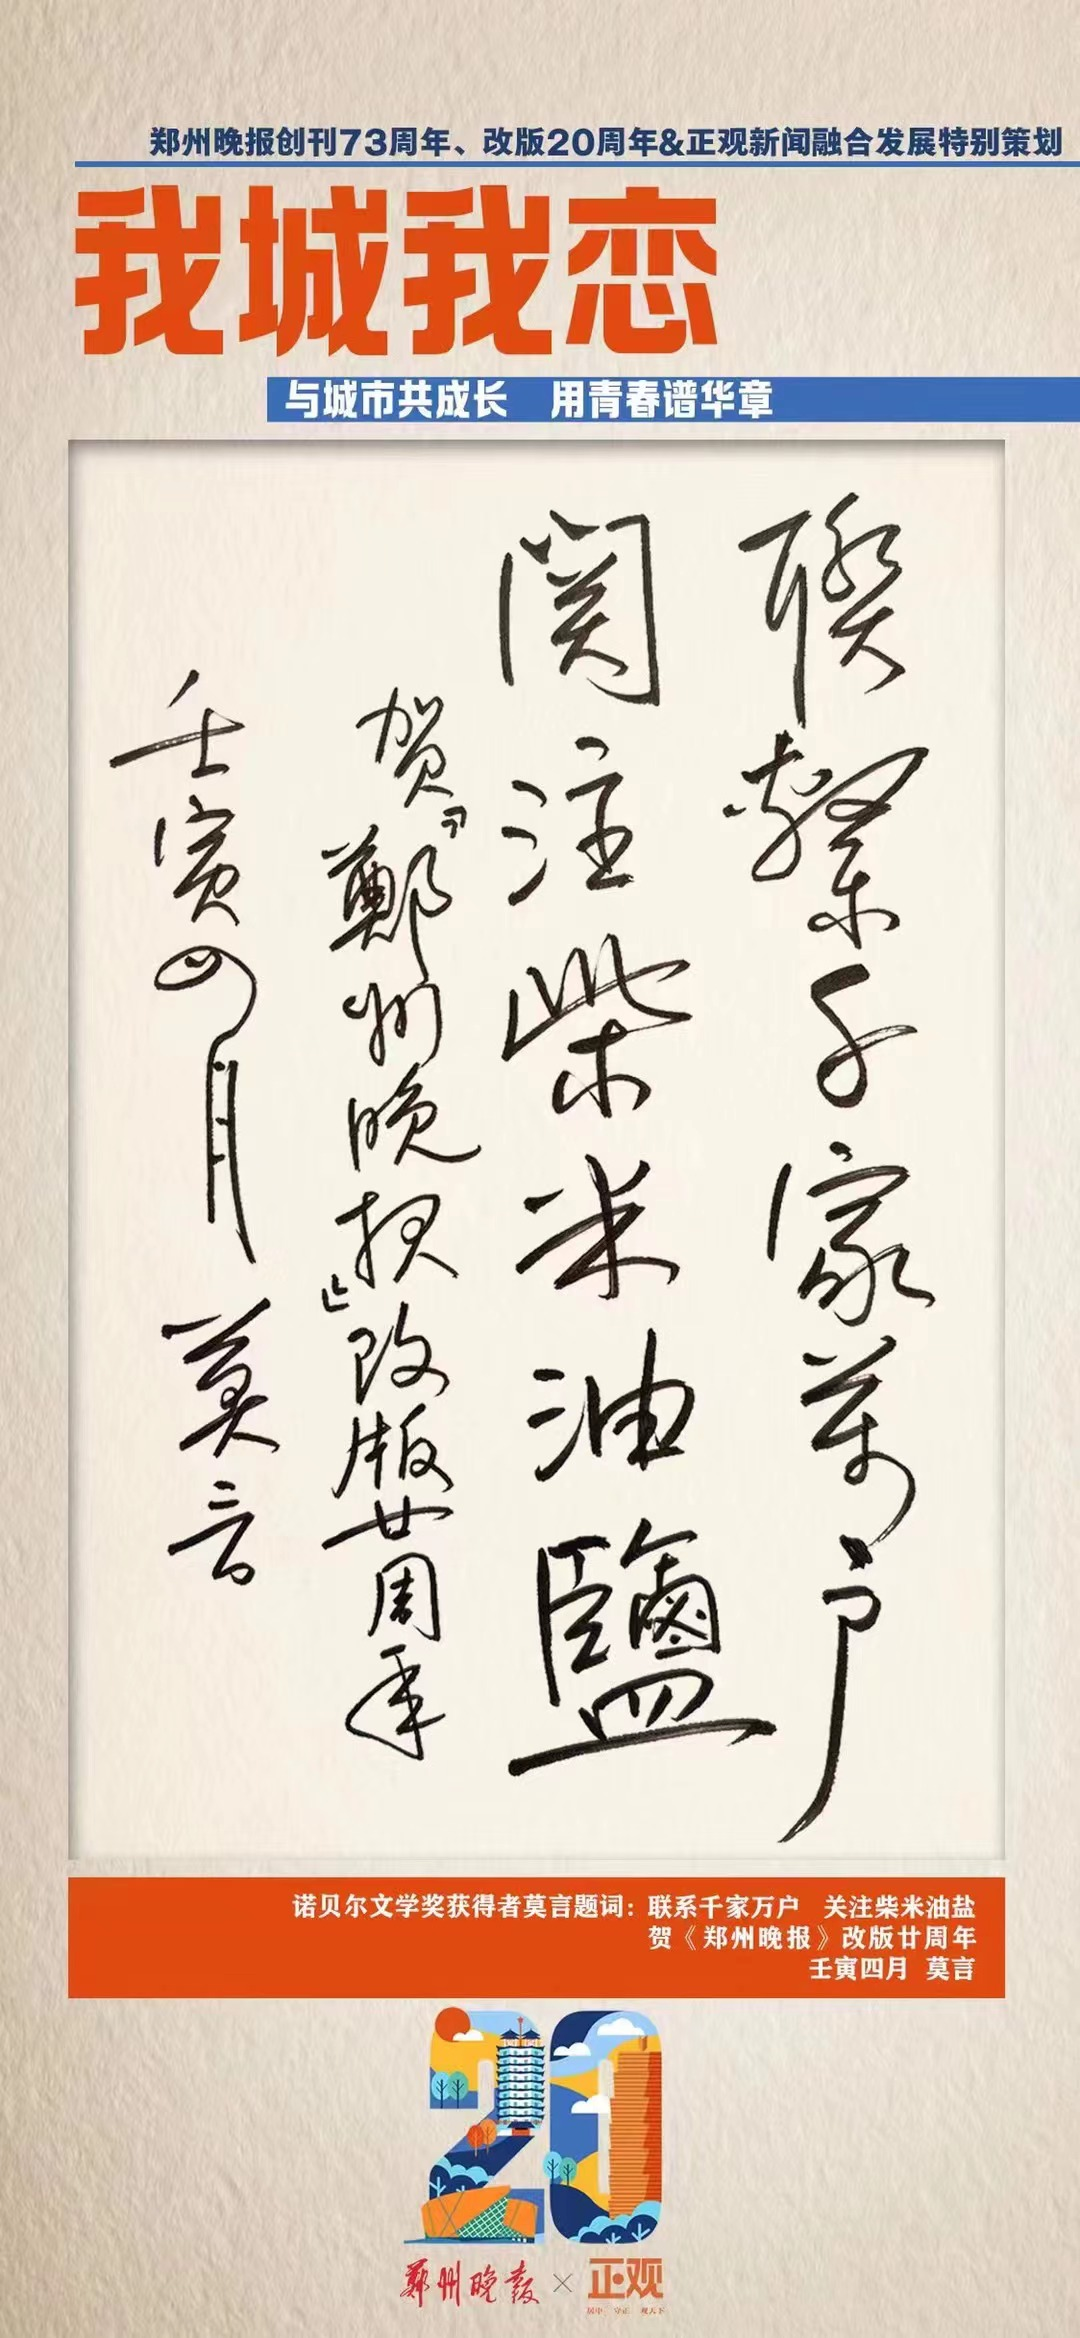 郑州晚报创刊73周年、改版20周年&正观新闻融合发展特别策划
我城我恋
与城市共成长 用青春谱华章
聯繫千家萬户
関注柴米油鹽
贺《鄭州晚报》改版廿周年
壬寅四月 莫言
诺贝尔文学奖获得者莫言题词：联系千家万户 关注柴米油盐
贺《郑州晚报》改版廿周年
壬寅四月 莫言
20
鄭州晚报×正观
居中 守正 观天下